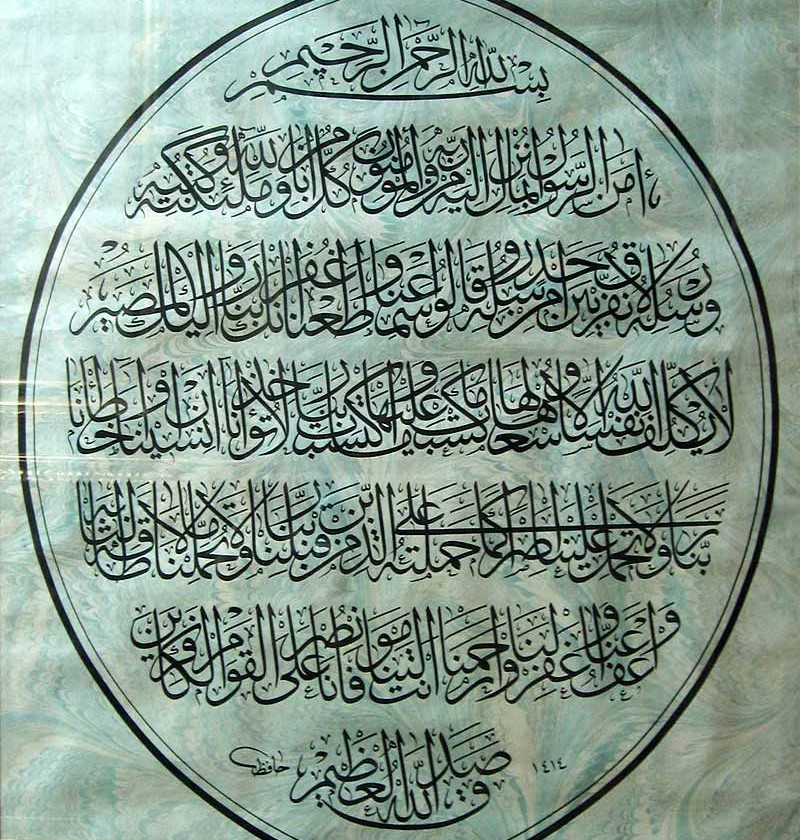 بسم الله الرحمن الرحيم
ءامن الرسول بما انزل اليه من ربه والمؤمنون كل ءامن بالله وملئكته وكتبه
ورسله لا نفرق بين احد من رسله وقالوا سمعنا واطعنا غفرانك ربنا واليك المصير
لا يكلف الله نفسا الا وسعها لها ما كسبت وعليها ما اكتسبت ربنا لا تؤاخذنا ان نسينا او اخطأنا
ربنا ولا تحمل علينا اصرا كما حملته على الذين من قبلنا ربنا ولا تحملنا ما لا طاقة لنا به
واعف عنا واغفر لنا وارحمنا انت مولينا فانصرنا على القوم الكافرين
صدق الله العظيم ١٤١٤